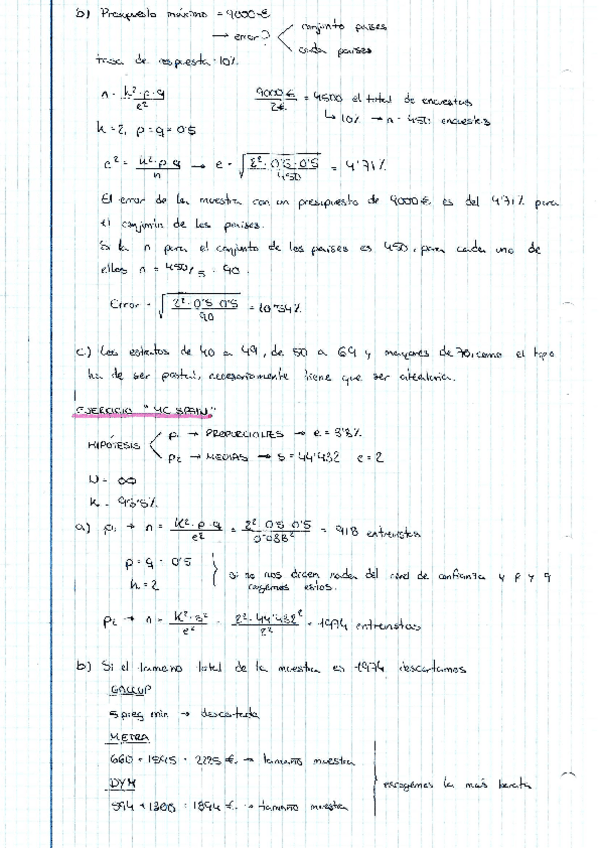 b) Presupuesto máximo = 9000 €
→ error? < conjunto países
cada países
tasa de respuesta 10%
n = k²·p·q / e²
9000 € / 2 € = 4500 el total de encuestas
↳ 10% → n = 450 encuestas
k = 2, p = q = 0'5
e² = k²·p·q / n → e = √(2²·0'5·0'5 / 450) = 4'71%
El error de la muestra con un presupuesto de 9000 € es del 4'71% para
el conjunto de los países.
Si la n para el conjunto de los países es 450, para cada uno de
ellos n = 450/5 = 90.
Error = √(2²·0'5·0'5 / 90) = 10'54%
c) Los estratos de 40 a 49, de 50 a 64 y mayores de 70, como el tipo
ha de ser postal, necesariamente tiene que ser aleatoria.
EJERCICIO "4C SPAIN"
HIPÓTESIS < P1 → PROPORCIONES → e = 3'3%
P2 → MEDIAS → s = 44'432 e = 2
N = ∞
K = 95'5%
a) P1 → n = K²·p·q / e² = 2²·0'5·0'5 / 0'033² = 918 entrevistas
p = q = 0'5
k = 2
} si no nos dicen nada del nivel de confianza y p y q
cogemos estos.
P2 → n = K²·s² / e² = 2²·44'432² / 2² = 1974 entrevistas
b) Si el tamaño total de la muestra es 1974 descartamos
GALLUP
5 preg min → descartada
METRA
660 + 1545 = 2225 €. → tamaño muestra
DYM
594 + 1300 = 1894 €. → tamaño muestra
} escogemos la más barata